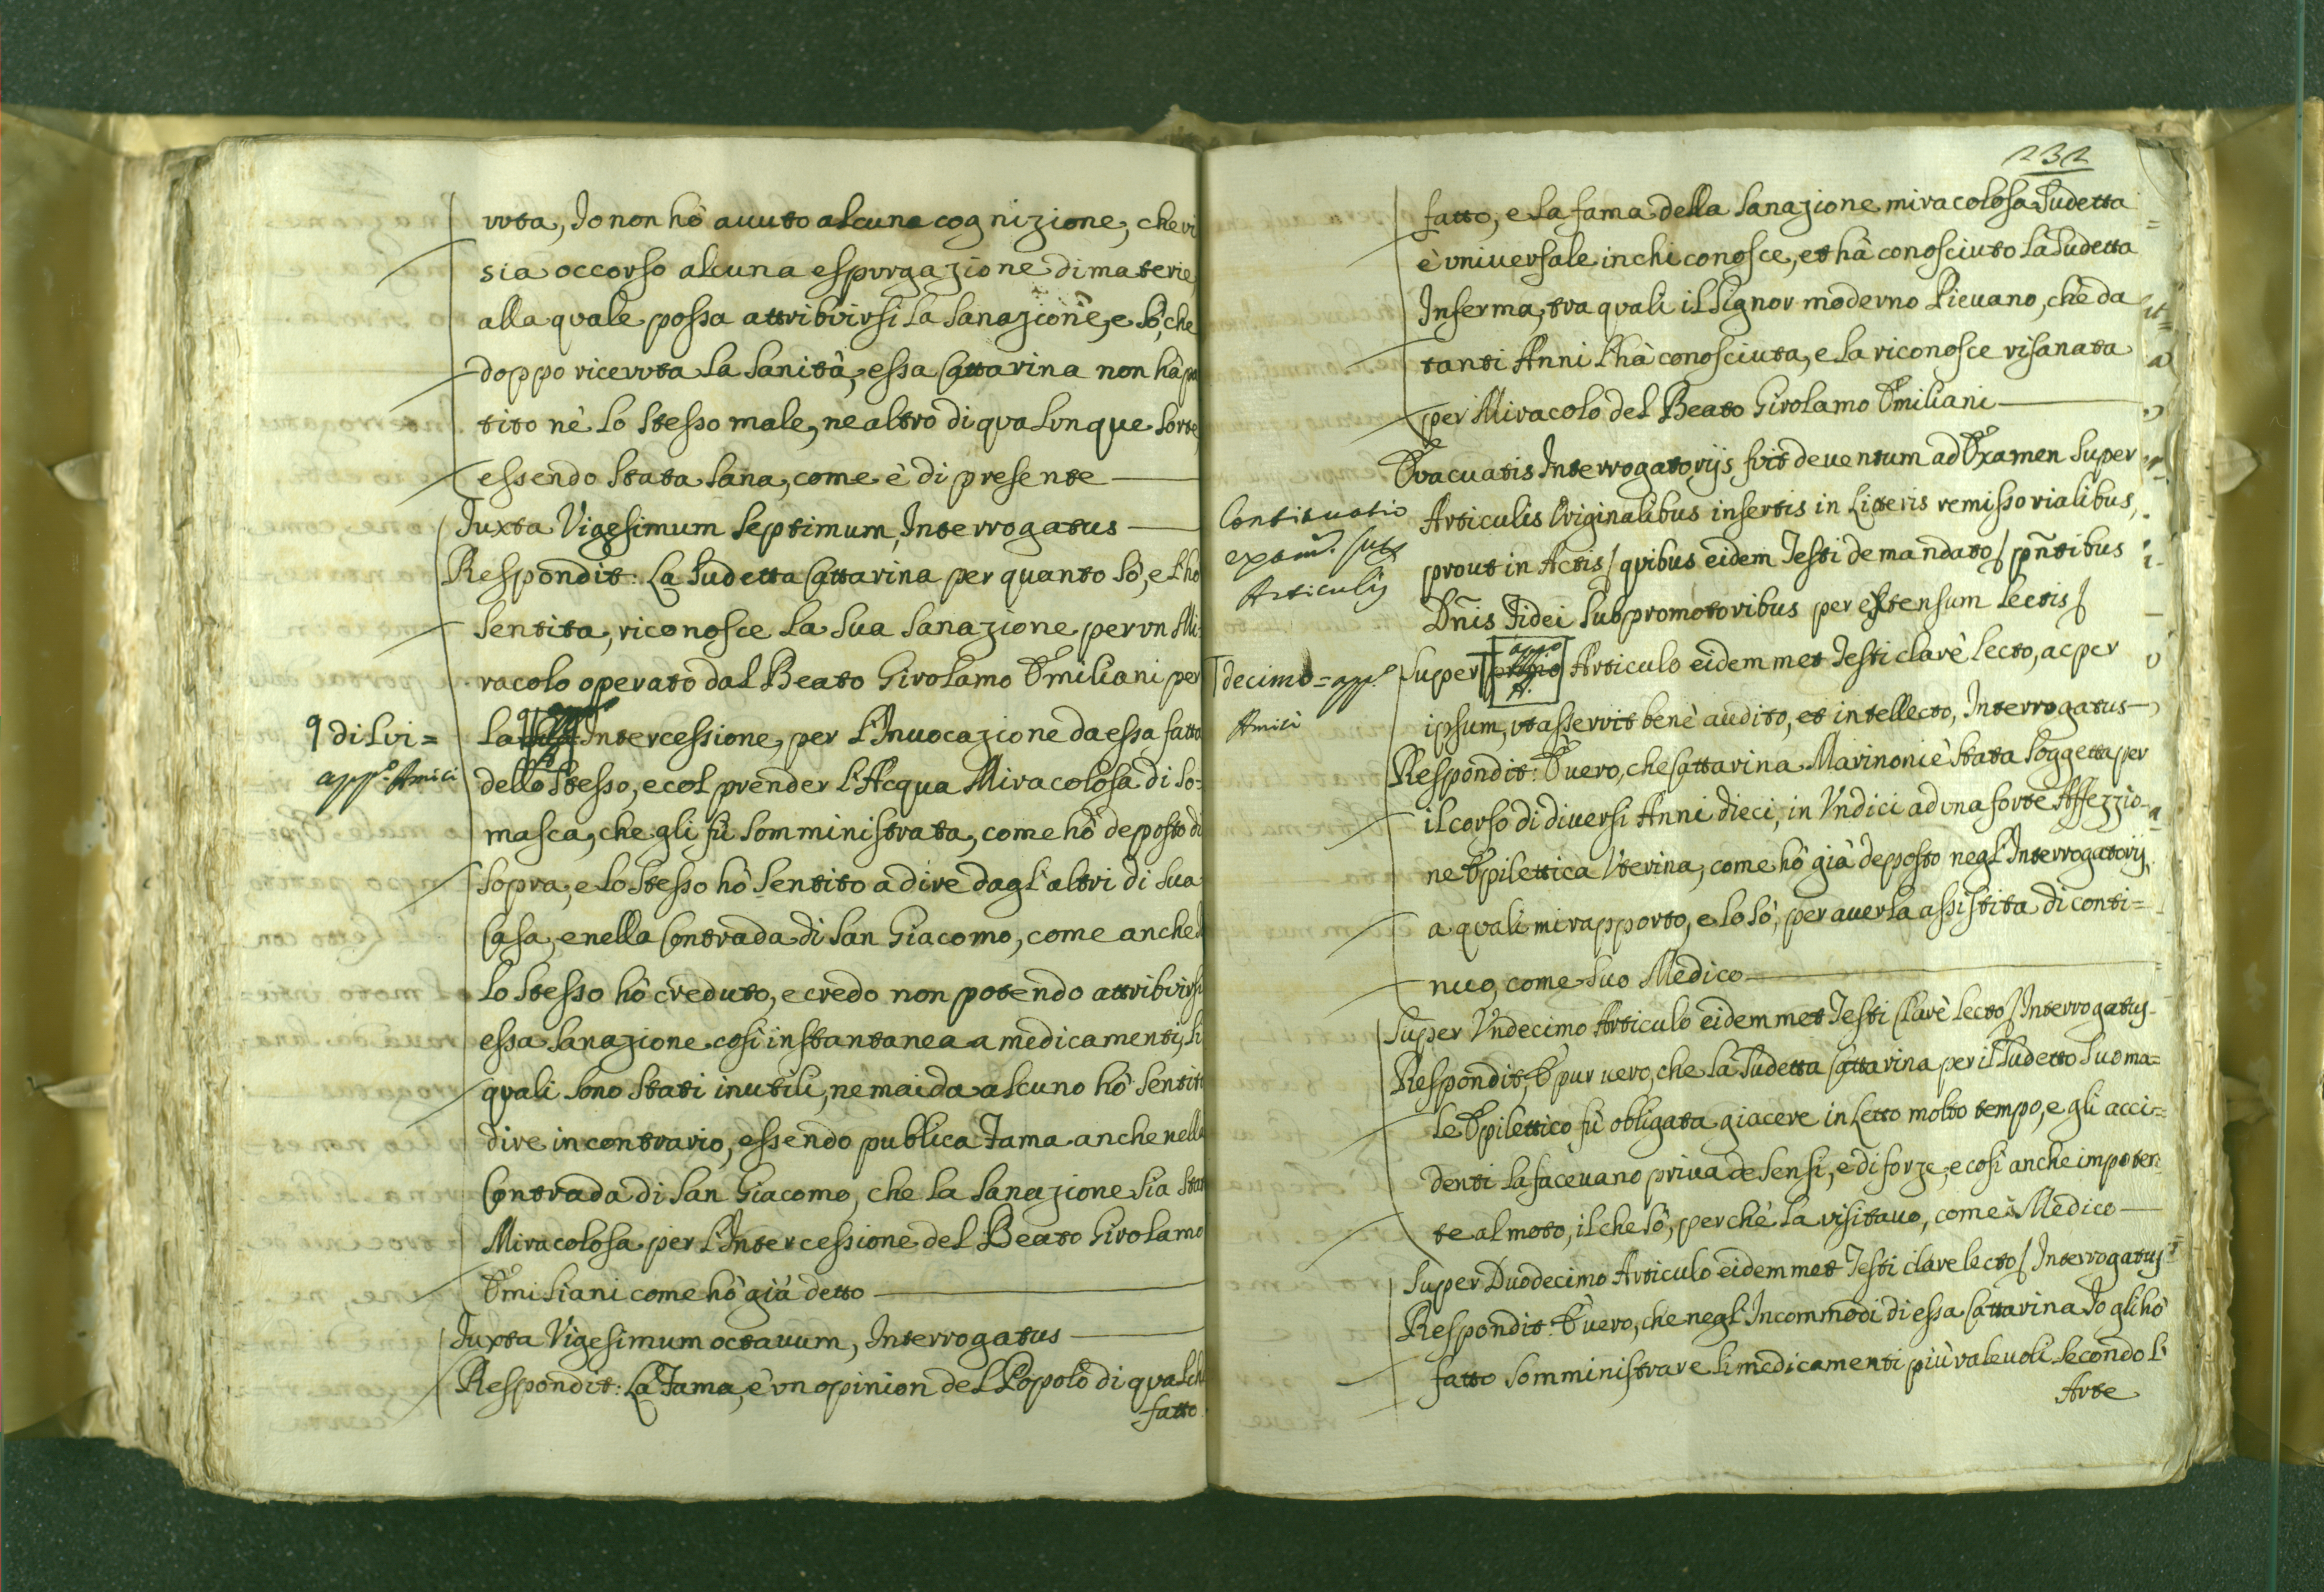 vuta, Io non hò auuto alcuna cognizione, che vi
sia occorso alcuna espurgazione di materie,
alla quale possa attribuirsi la Sanazione, e sò, che
doppo riceuuta la Sanità, essa Cattarina non hà pa
tito nè lo stesso male, ne altro di qualunque sorte,
essendo stata sana, come è di presente
Juxta Vigesimum Septimum, Interrogatus
Respondit: La Sudetta Cattarina per quanto sò, e l'ho
sentita, riconosce la sua sanazione per un Mi=
racolo operato dal Beato Girolamo Emiliani per
La Intercessione, per l'Inuocazione da essa fatta
dello stesso, e col prender l'Acqua Miracolosa di So=
masca, che gli fù somministrata, come hò deposto di
sopra, e lo stesso hò sentito a dire dagl'altri di sua
Casa, e nella Contrada di San Giacomo, come anche
lo stesso hò creduto, e credo non potendo attribuirsi
essa sanazione così instantanea a medicamenti, li
quali sono stati inutili, ne mai da alcuno hò sentito
dire in contrario, essendo publica Fama anche nella
Contrada di San Giacomo, che la Sanazione sia stata
Miracolosa per l'Intercessione del Beato Girolamo
Emiliani come hò già detto
Juxta Vigesimum octauum, Interrogatus
Respondit: La Fama, è un opinion del Popolo di qualche
fatto
q di Lui =
app.º Amici
232
fatto, e la fama della Sanazione miracolosa Sudetta
è uniuersale in chi conosce, et hà conosciuto la Sudetta
Inferma, tra quali il Signor moderno Pieuano, che da
tanti Anni l'hà conosciuta, e la riconosce risanata
per Miracolo del Beato Girolamo Emiliani
Euacuatis Interrogatorijs fuit deuentum ad Examen super
Articulis Originalibus insertis in Literis remissorialibus,
prout in Actis / quibus eidem Testi de mandato / pñtibus
Dñis Fidei Subpromotoribus per extensum lectis /
Super Articulo eidemmet Testi clarè lecto, ac per
ipsum, ut asseruit benè audito, et intellecto, Interrogatus
Respondit: È uero, che Cattarina Marinoni è stata soggetta per
il corso di diuersi Anni dieci, in Vndici ad una forte Affezzio=
ne Epilettica Vterina, come hò già deposto negl'Interrogatorij,
a quali mi rapporto, e lo sò, per auerla assistita di conti=
nuo, come suo Medico
Super Vndecimo Articulo eidemmet Testi Clarè lecto / Interrogatus
Respondit: È pur uero, che la Sudetta Cattarina per il Sudetto suo ma=
le Epilettico fù obligata giacere in Letto molto tempo, e gli acci=
denti la faceuano priua de sensi, e di forze, e così anche impoten
te al moto, il che sò, perche la visitauo, come Medico
Super Duodecimo Articulo eidemmet Testi clare lecto / Interrogatus
Respondit: È uero, che negl'Incommodi di essa Cattarina Io gli hò
fatto somministrare li medicamenti più valeuoli secondo l'
Arte
Continuatio
exam. sup.
Articulis
decimo = app.º
Amici